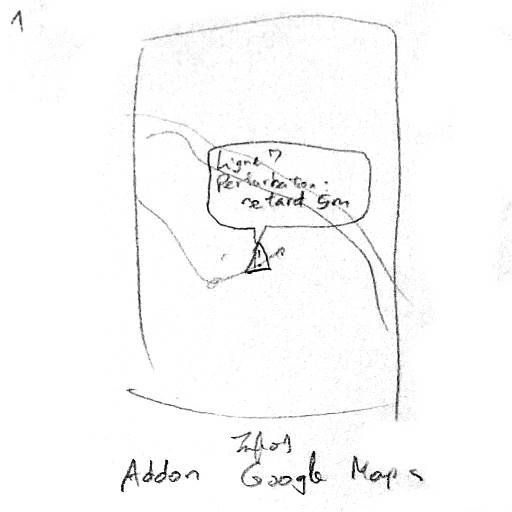 1
Ligne 7
Perturbation:
retard 5m
!
Addon Google Maps